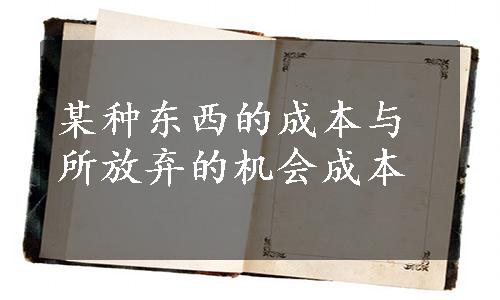 某种东西的成本与
所放弃的机会成本